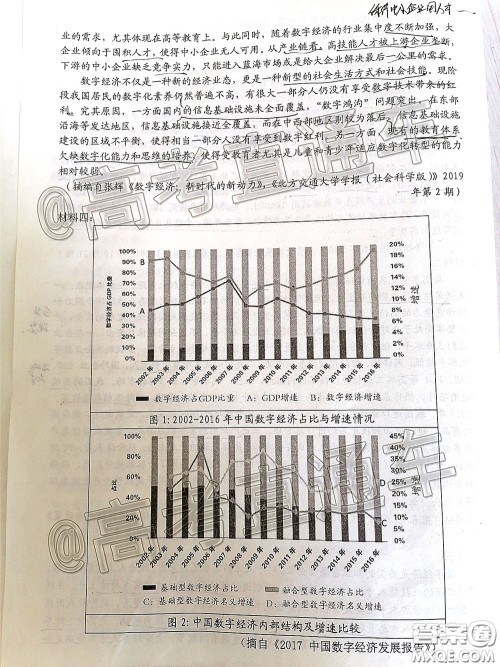 业的需求，尤其体现在高等教育上。与此同时，随着数字经济的行业集中度不断加强，大
企业倾向于囤积人才，使得中小企业无人可用。从产业链看，高技能人才被上游企业垄断，
下游的中小企业缺乏竞争实力，只能进入蓝海市场或是给大企业解决最后一公里的需求。
数字经济不仅是一种新的经济业态，更是一种新型的社会生活方式和社会技能。现阶
段我国居民的数字化素养仍然普遍不高，有很大一部分人仍没有享受数字技术带来的红
利。究其原因，一方面国内的信息基础设施未全面覆盖，“数字鸿沟”问题突出，在东部
沿海等发达地区，信息基础设施接近全覆盖，而在中西部地区则较为落后，信息基础设施
建设的区域不平衡，使得相当一部分人没有享受到数字红利。另一方面，现有的教育体系
欠缺数字化能力和思维的培养，使得受教育者尤其是儿童和青少年适应数字化转型的能力
相对较弱。
（摘编自张辉《数字经济：新时代的新动力》，《北方交通大学学报（社会科学版）》2019
年第2期）
材料四：
B
A
数字经济占GDP比重
增速
100%
90%
80%
70%
60%
50%
40%
30%
20%
10%
0%
20%
18%
16%
14%
12%
10%
8%
6%
4%
2%
0%
2002年 2003年 2004年 2005年 2006年 2007年 2008年 2009年 2010年 2011年 2012年 2013年 2014年 2015年 2016年
数字经济占GDP比重 A：GDP增速 B：数字经济增速
图1：2002-2016年中国数字经济占比与增速情况
占比
增速
100%
90%
80%
70%
60%
50%
40%
30%
20%
10%
0%
45%
40%
35%
30%
25%
20%
15%
10%
5%
0%
D
C
2002年 2003年 2004年 2005年 2006年 2007年 2008年 2009年 2010年 2011年 2012年 2013年 2014年 2015年 2016年
基础型数字经济占比 融合型数字经济占比
C：基础型数字经济名义增速 D：融合型数字经济名义增速
图2：中国数字经济内部结构及增速比较
（摘自《2017 中国数字经济发展报告》）
@高考直通车
@高考直通车
@高考直通车
答案圈
MXQE.COM